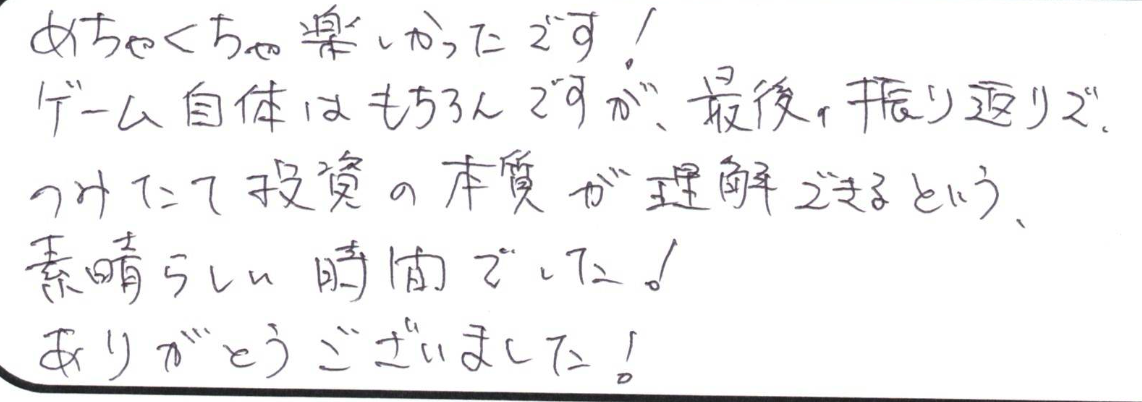 めちゃくちゃ楽しかったです!
ゲーム自体はもちろんですが、最後の振り返りで、
つみたて投資の本質が理解できるという、
素晴らしい時間でした!
ありがとうございました!